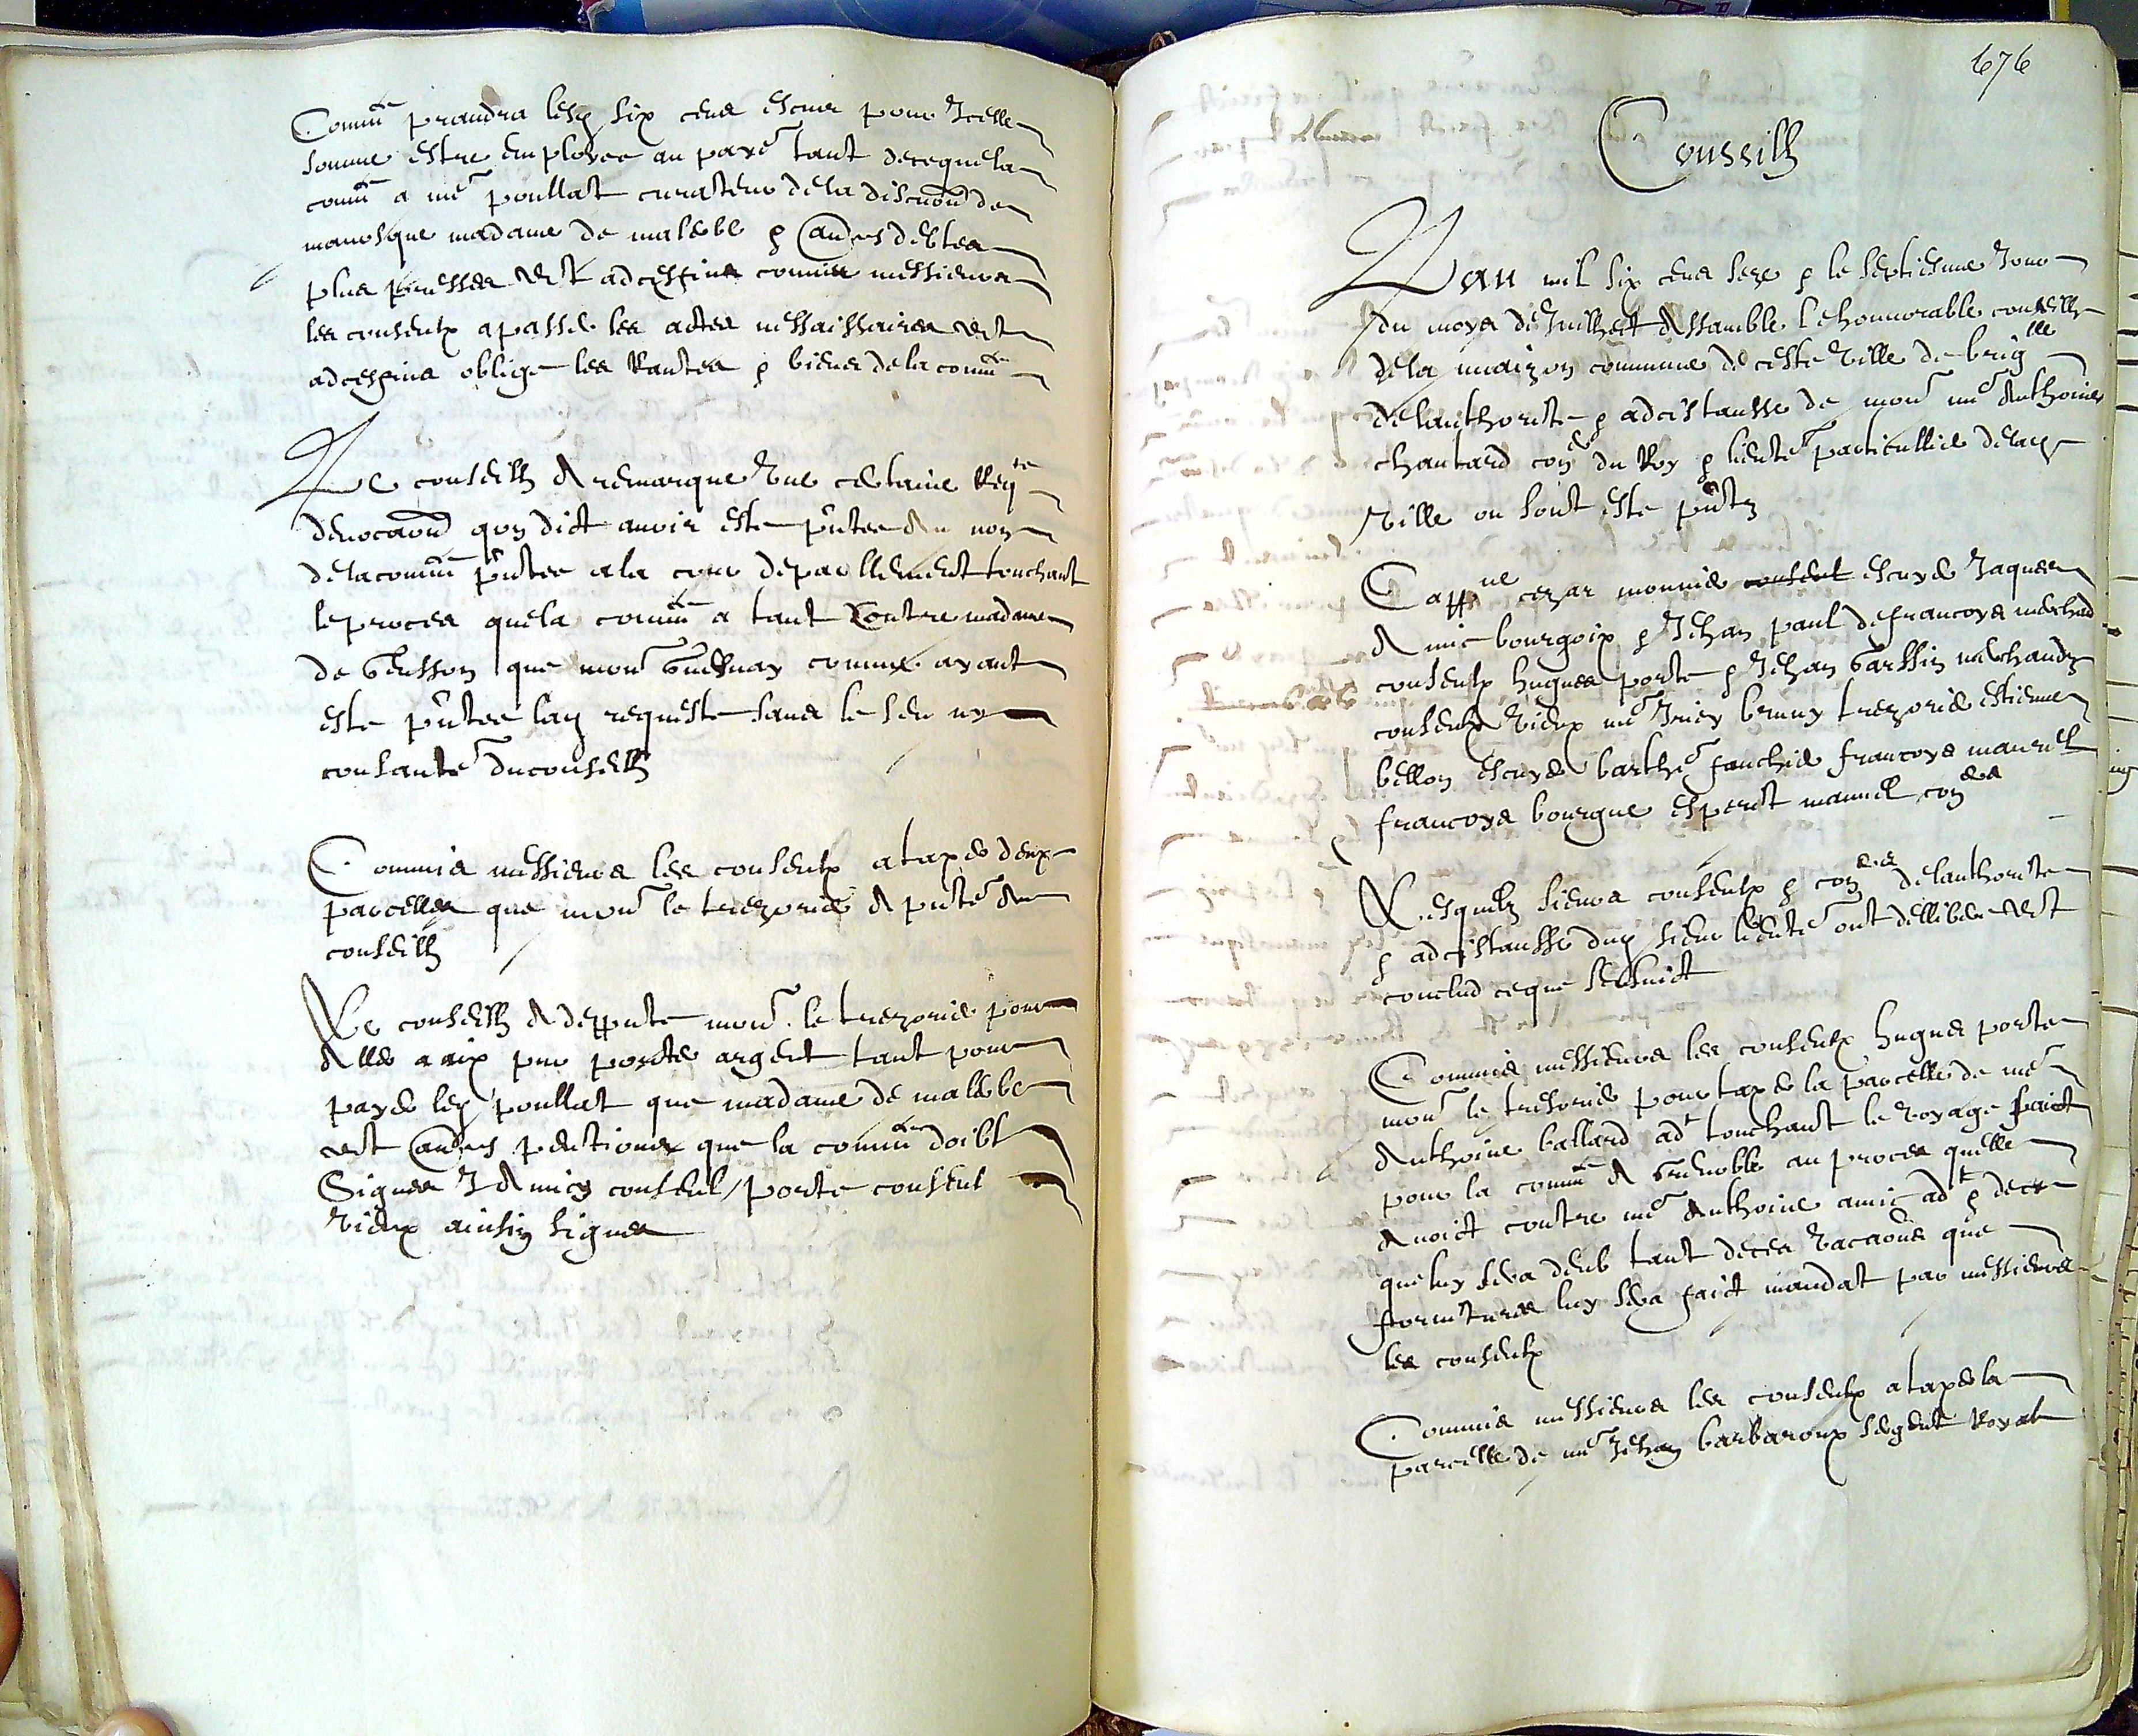 Commté prandra lesq six cens escus pour Icelle
somme estre employee au paymt tant de ce que la
commté a me poullat curateur de la discuon de
manosque madame de malerbe & aultres debtes
plus presses et ad ces fins commis messieurs
les conseulx a passer les actes nessaissaires et
ad ces fins oblige les Rantes & biens de la commté
Le conseilh A remarque Une certaine Reqte
devocaon quon dict avoir este pntee Au nom
de la commté pntee a la cour de parllement touchant
le proces que la commté a tant Contre madame
de Gersson que monr Guernay comme ayant
este pntee lad requeste sans le seu ny
consantemt du conseilh
Commis messieurs les conseulx a taxer deux
parcelles que monr le trezorier A pnte Au
conseilh
Le conseilh A deppute monr le trezorier pour
Aller a aix pour porter argent tant pour
payer led poullat que madame de malerbe
et aultres pentions que la commté doibt
Signes J Amic conseul / porte conseul
Vieux ainsin signes
676
Conseilh
Lan mil six cens seze & le septiesme Jour
du moys de Juilhect Assamble lhonnorable conseilh
de la maizon commune de ceste Ville de briglle
de lauthorite & adcistansse de monr me Anthoine
chautard coner du Roy & lieutent particullier de lad
Ville ou sont este pntz
Cappne cezar monnier conseul escuyer Jaques
Amic bourgoix & Jehan paul de francoys merchad
conseulx hugues porte & Jehan Garssin merchandz
conseulx Vieux me Juien bruny trezorier estienne
bellon escuyer barthe fauchier francoys maurel
francoys bourgue esperit manuel coners
Lesquelz sieurs conseulx & coners de lauthorite
& adcistansse dud sieur lieutent ont dellibere et
conclud ce que sensuict
Commis messieurs les conseulx hugues porte
monr le tresorier pour taxer la parcelle de me
Anthoine ballard adt touchant le Voyage faict
pour la commté A Grenoble au proces quelle
Avoict contre me Anthoine amic adt & de ce
que luy sera deub tant de ces Vacaons que
fornitures luy sera faict mandat par messieurs
les conseulx
Commis messieurs les conseulx a taxer la
parcelle de me Jehan barbaroux sergent Royal